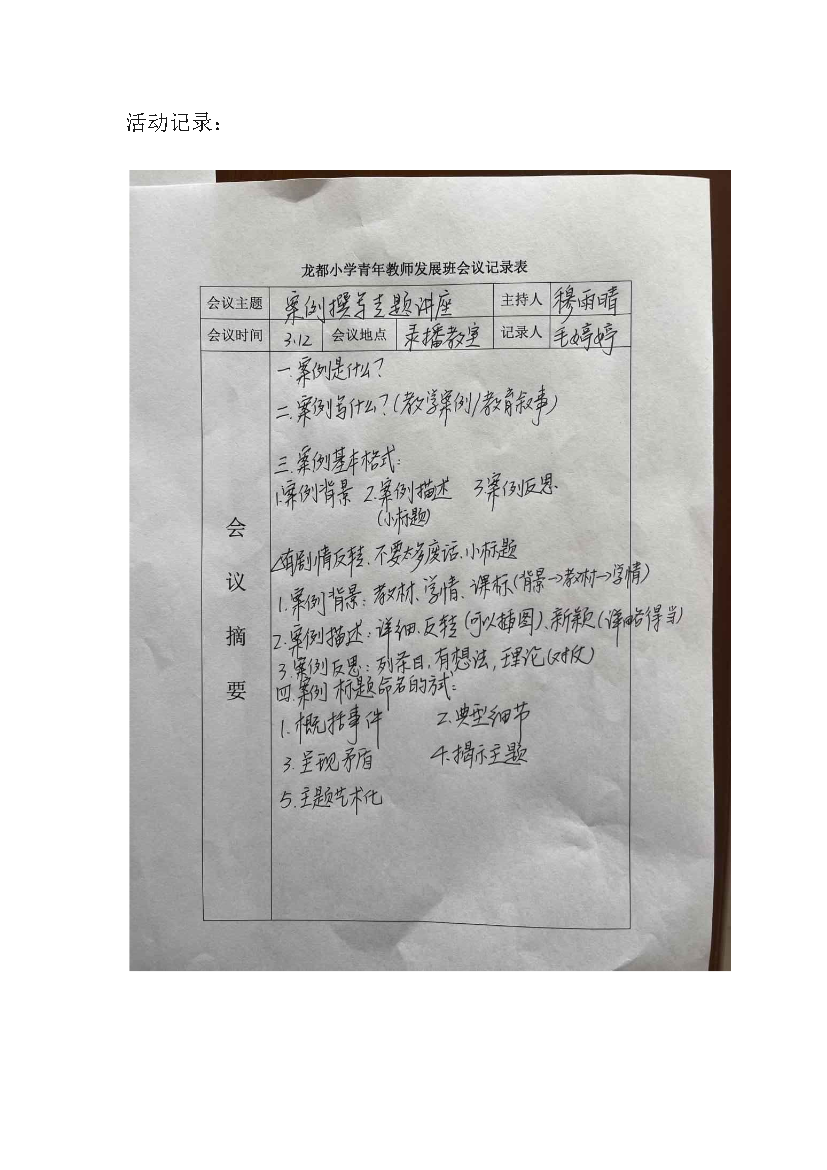 活动记录：
龙都小学青年教师发展班会议记录表
会议主题 案例撰写专题讲座 主持人 穆雨晴
会议时间 3.12 会议地点 录播教室 记录人 毛婷婷
会议摘要
一.案例是什么?
二.案例写什么?(教学案例/教育叙事)
三.案例基本格式:
1.案例背景 2.案例描述 3.案例反思
(小标题)
△有剧情反转、不要太多废话、小标题
1.案例背景:教材、学情、课标(背景→教材→学情)
2.案例描述:详细、反转(可以插图)、新颖(详略得当)
3.案例反思:列条目,有想法,理论
四.案例 标题命名的方式:
1.概括事件 2.典型细节
3.呈现矛盾 4.揭示主题
5.主题艺术化